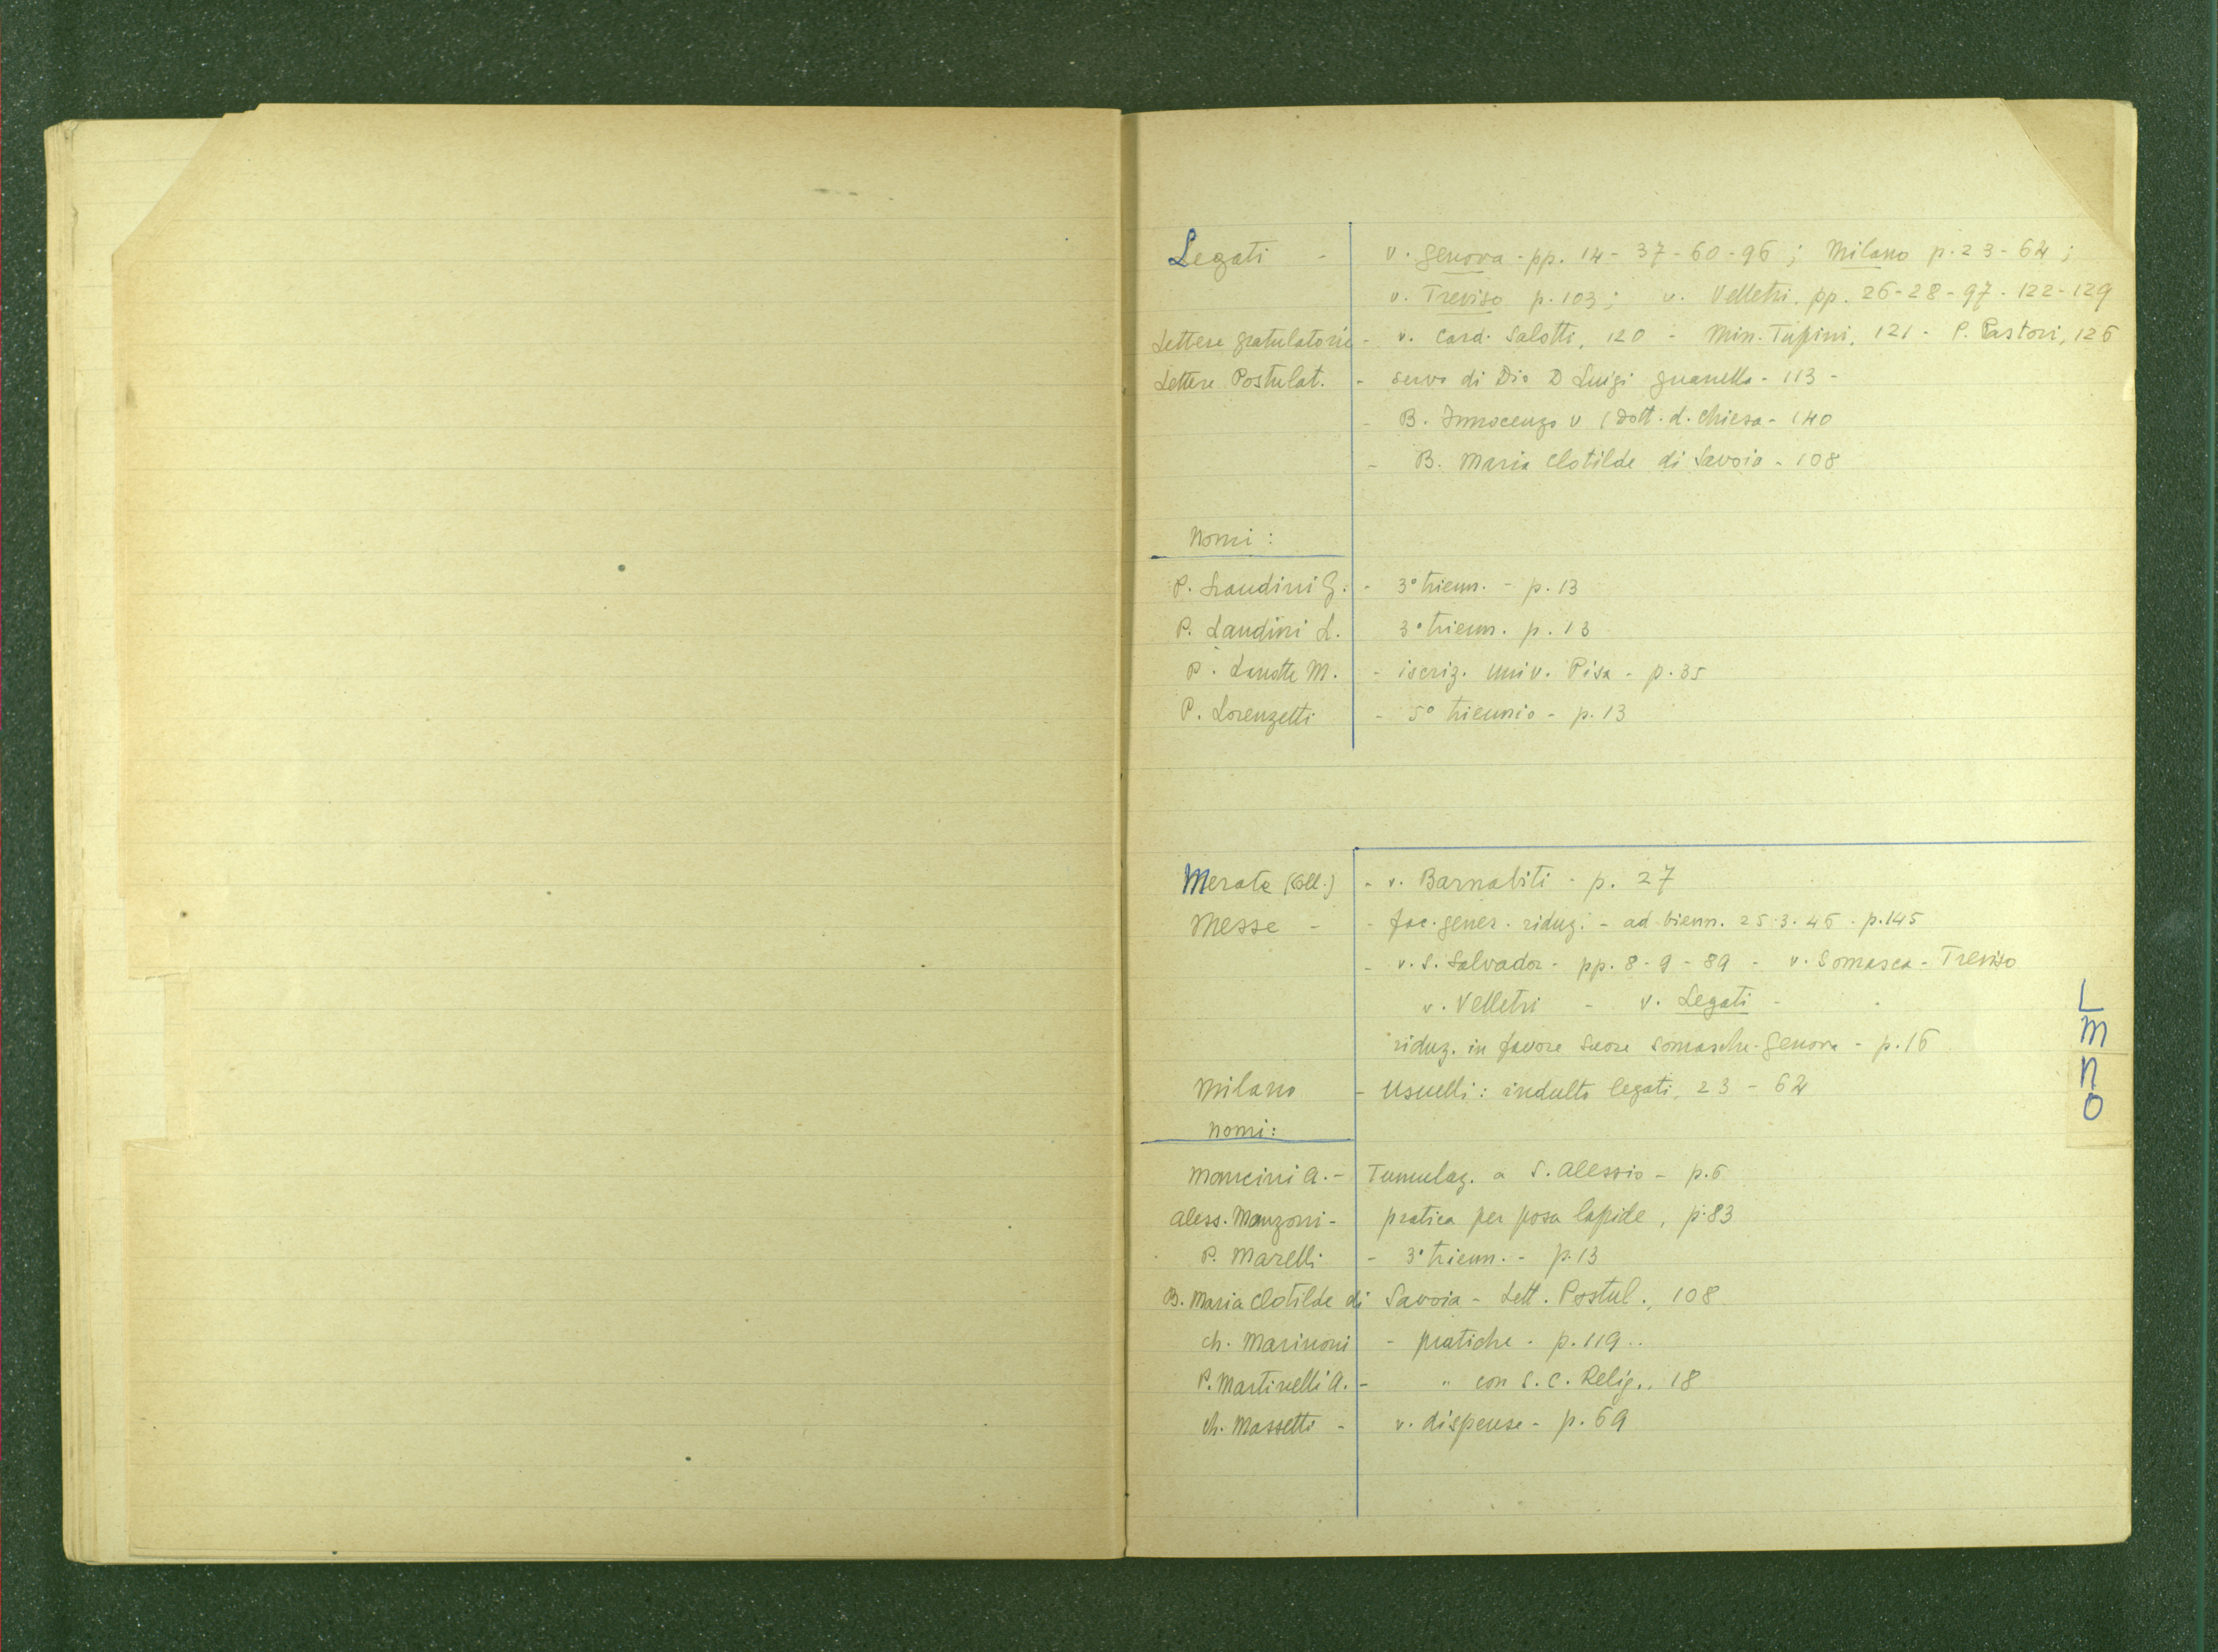 Legati - v. Genova - pp. 14 - 37 - 60 - 96 ; Milano p. 23 - 62 ;
v. Treviso p. 103 ; v. Velletri, pp. 26 - 28 - 97 - 122 - 129
Lettere gratulatorie - v. Card. Salotti, 120 - Min. Tupini, 121 - P. Pastori, 126
Lettere Postulat. - servo di Dio D Luigi Guanella - 113 -
- B. Innocenzo V (Dott. d. Chiesa - 140
- B. Maria Clotilde di Savoia - 108
Nomi :
P. Landini G. - 3° trienn. - p. 13
P. Landini L. 3° trienn. p. 13
P. M. - iscriz. Univ. Pisa - p. 35
P. Lorenzetti - 5° triennio - p. 13
Merate (Coll.) - v. Barnabiti - p. 27
Messe - - fac. gener. riduz. - ad bienn. 25.3.46 - p. 145
- v. S. Salvador - pp. 8 - 9 - 89 - v. Somasca - Treviso
v. Velletri - v. Legati -
riduz. in favore Suore Somasche - Genova - p. 16
Milano - Usuelli : indulto legati, 23 - 62
Nomi :
Mancini A. - Tumulaz. a S. Alessio - p. 6
Aless. Manzoni - pratica per posa lapide, p. 83
P. Marelli - 3° trienn. - p. 13
B. Maria Clotilde di Savoia - Lett. Postul., 108
Ch. Marinoni - pratiche - p. 119 ..
P. Martinelli A. - " con S. C. Relig., 18
Ch. Massetti - v. dispense - p. 69
L
M
N
O